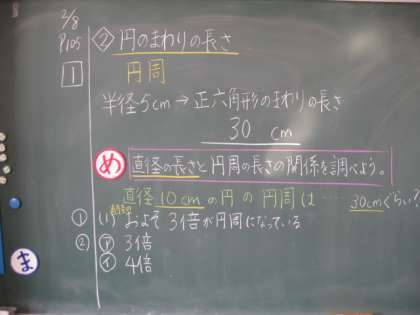 2/8
P105 ② 円のまわりの長さ
1 円周
半径5cm→正六角形のまわりの長さ
30 cm
め 直径の長さと円周の長さの関係を調べよう。
直径10cmの円の円周は…… 30cmぐらい?
① (1) およそ3倍が円周になっている
② ㋐ 3倍
㋑ 4倍
ま